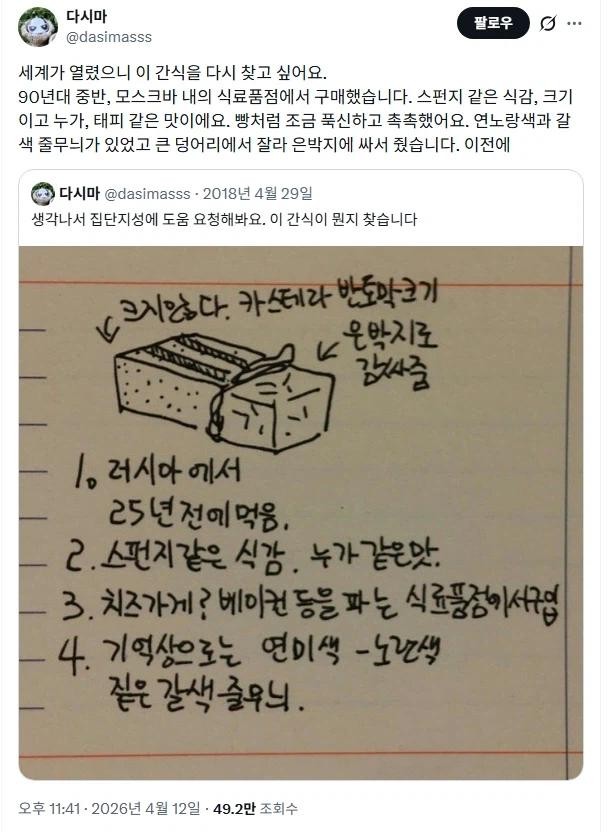 다시마
@dasimasss
팔로우
세계가 열렸으니 이 간식을 다시 찾고 싶어요.
90년대 중반, 모스크바 내의 식료품점에서 구매했습니다. 스펀지 같은 식감, 크기
이고 누가, 태피 같은 맛이에요. 빵처럼 조금 푹신하고 촉촉했어요. 연노랑색과 갈
색 줄무늬가 있었고 큰 덩어리에서 잘라 은박지에 싸서 줬습니다. 이전에
다시마 @dasimasss · 2018년 4월 29일
생각나서 집단지성에 도움 요청해봐요. 이 간식이 뭔지 찾습니다
크지않다. 카스테라 반토막크기
은박지로
감싸줌
1. 러시아에서
25년전에먹음.
2. 스펀지같은 식감. 누가같은맛.
3. 치즈가게? 베이컨등을 파는 식료품점에서구입
4. 기억상으로는 연미색 - 노란색
짙은 갈색 줄무늬.
오후 11:41 · 2026년 4월 12일 · 49.2만 조회수